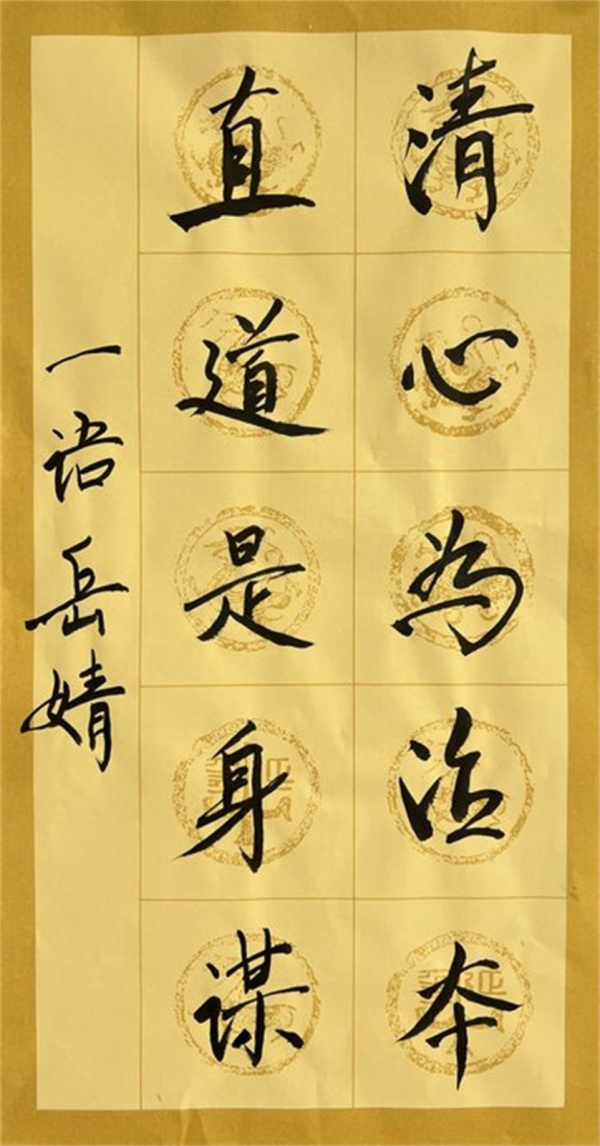 清心为治本
直道是身谋
一语岳婧